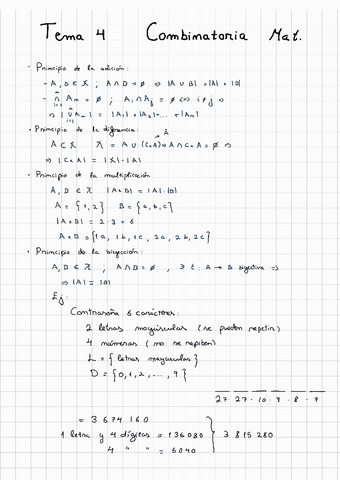 Tema 4 Combinatoria Mat.
· Principio de la adición:
- A, B ∈ X ; A ∩ B = ∅ ⇒ |A ∪ B| = |A| + |B|
⇒ | ∪ Am | = |A1| + |A2| + ... + |Am|
· Principio de la diferencia:
A ⊂ X
· Principio de la multiplicación
A, B ∈ X |A×B| = |A|·|B|
A = {1, 2} B = {a, b, c}
|A×B| = 2·3 = 6
A×B = {1a, 1b, 1c, 2a, 2b, 2c}
· Principio de la biyección:
A, B ∈ X ; A ∩ B = ∅ , ∃ f: A → B biyectiva ⇒
⇒ |A| = |B|
Ej:
Contraseña 6 carácteres:
2 letras mayúsculas (se pueden repetir)
4 números (no se repiten)
L = {letras mayusculas}
D = {0, 1, 2, ..., 9}
27 · 27 · 10 · 9 · 8 · 7
= 3 674 160
1 letra y 4 dígitos = 136080 } 3 815 280
4 " " = 5040